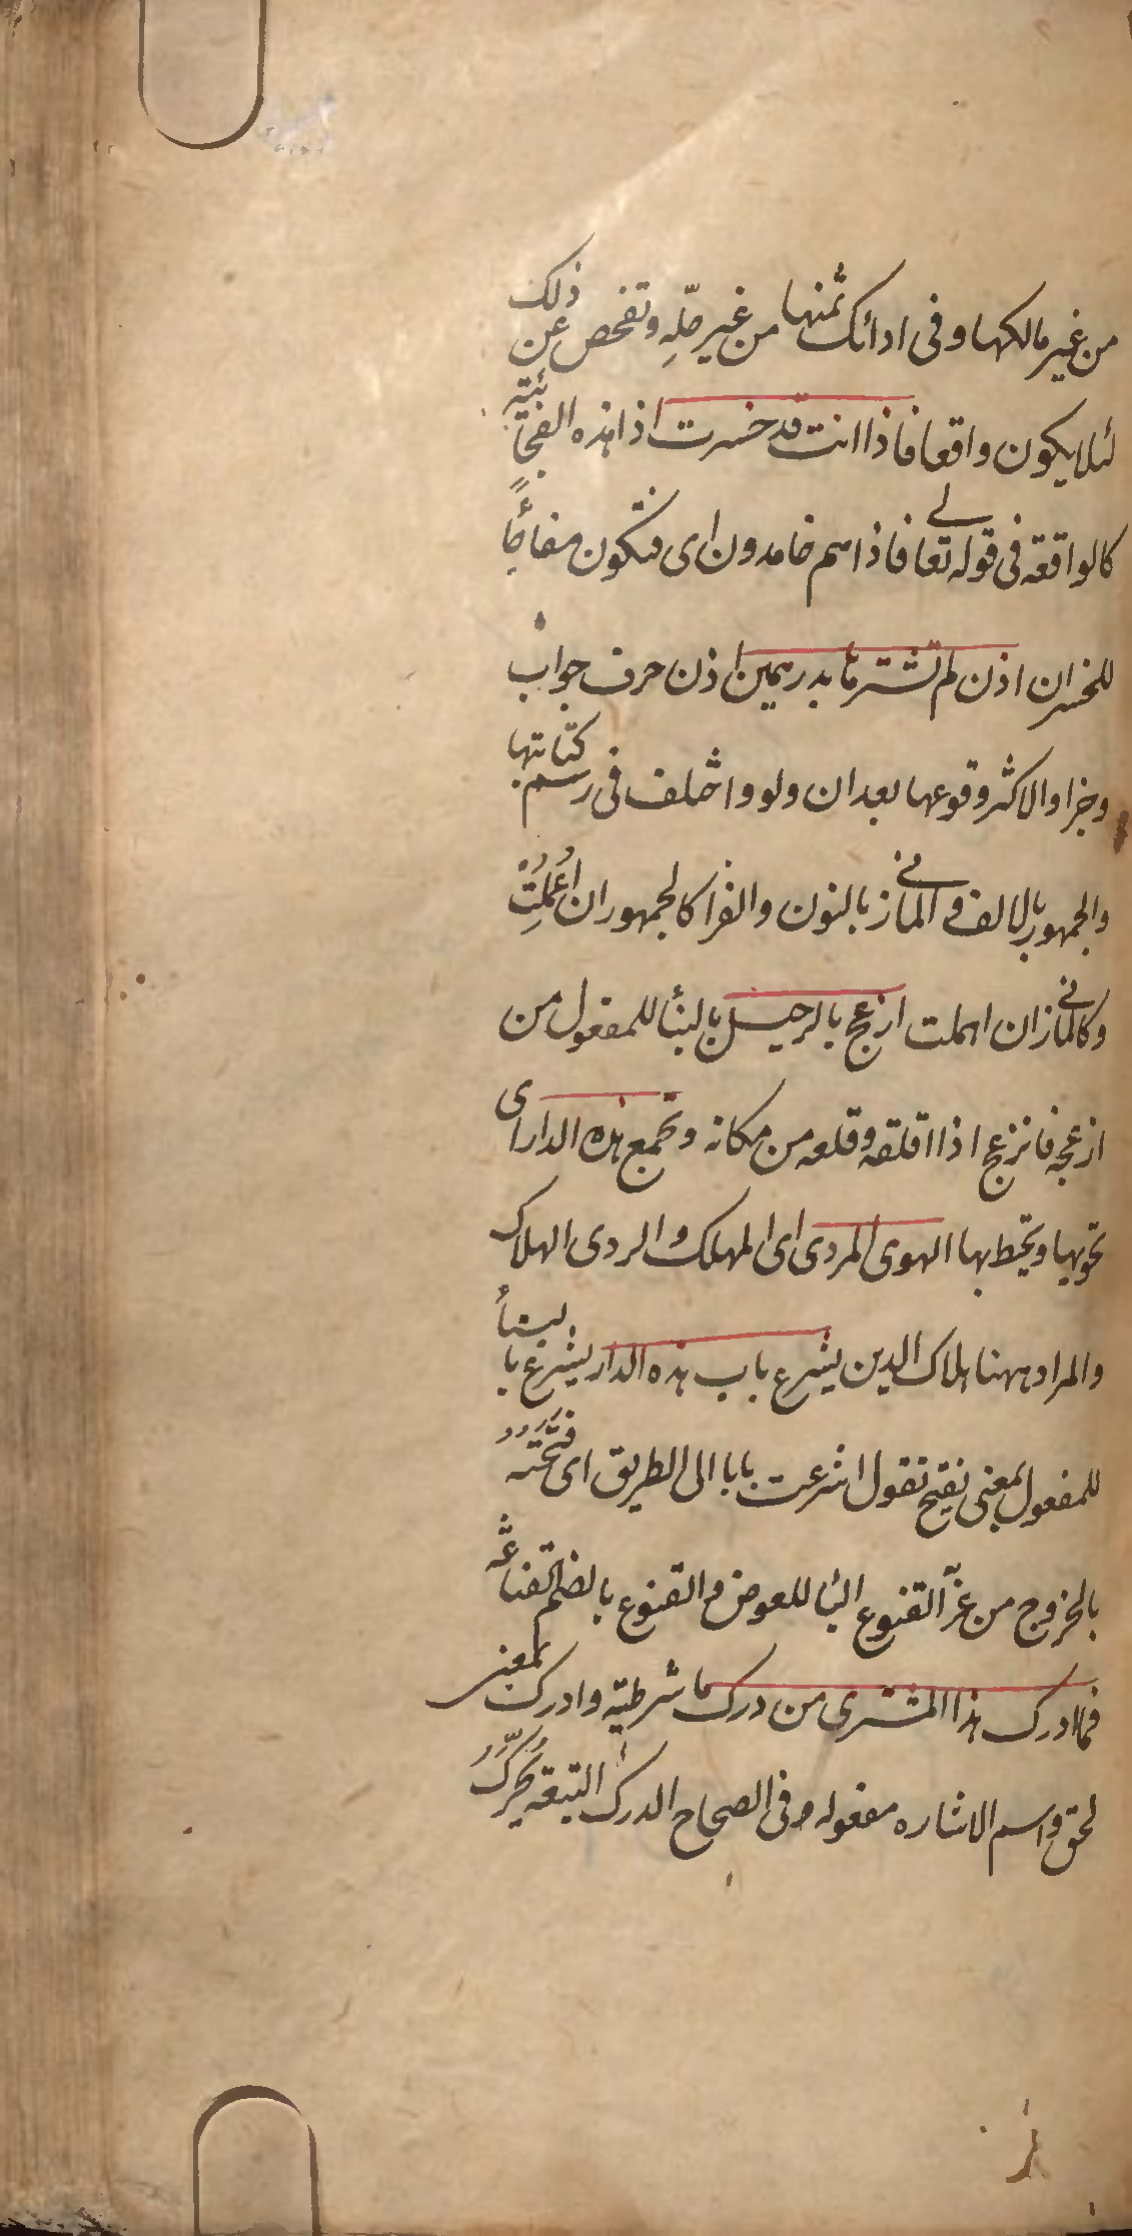 من غير مالكها وفى ادائك ثمنها من غير حلّهِ وتفحص عن ذلك
لئلا يكون واقعا فاذا انت قد خسرت اذا هذه الفجائية
كالواقعة فى قوله تعالے فاذا هم خامدون اى فتكون مفاجأً
للخسران اذن لم تشترها بدرهمين اذن حرف جواب
وجزا والاكثر وقوعها بعد ان ولو واختلف فى رسم كتابتها
والجمهور بالالف و المازنے بالنون والفرا كالجمهور ان اُعْمِلَتْ
وكالمازنے ان اهملت ازعج بالرحيل بالبنأ للمفعول من
ازعجه فانزعج اذا اقلقه وقلعه من مكانه وتجمع هذه الدار اى
تحويها ويحيط بها الهوى المردى اى المهلك والردى الهلاك
والمراد ههنا هلاك الدين يشرع باب هذه الدار يشرع بالبنأ
للمفعول بمعنى يفتح تقول اشرعت بابا الى الطريق اى فَتَحْتُهُ
بالخروج من عزّ القنوع البا للعوض و القنوع بالضم القناعة
فما ادرك هذا المشترى من درك ما شرطية وادرك بمعنى
لحق واسم الاشاره مفعوله وفى الصحاح الدرك التبعة يُحَرَّكُ